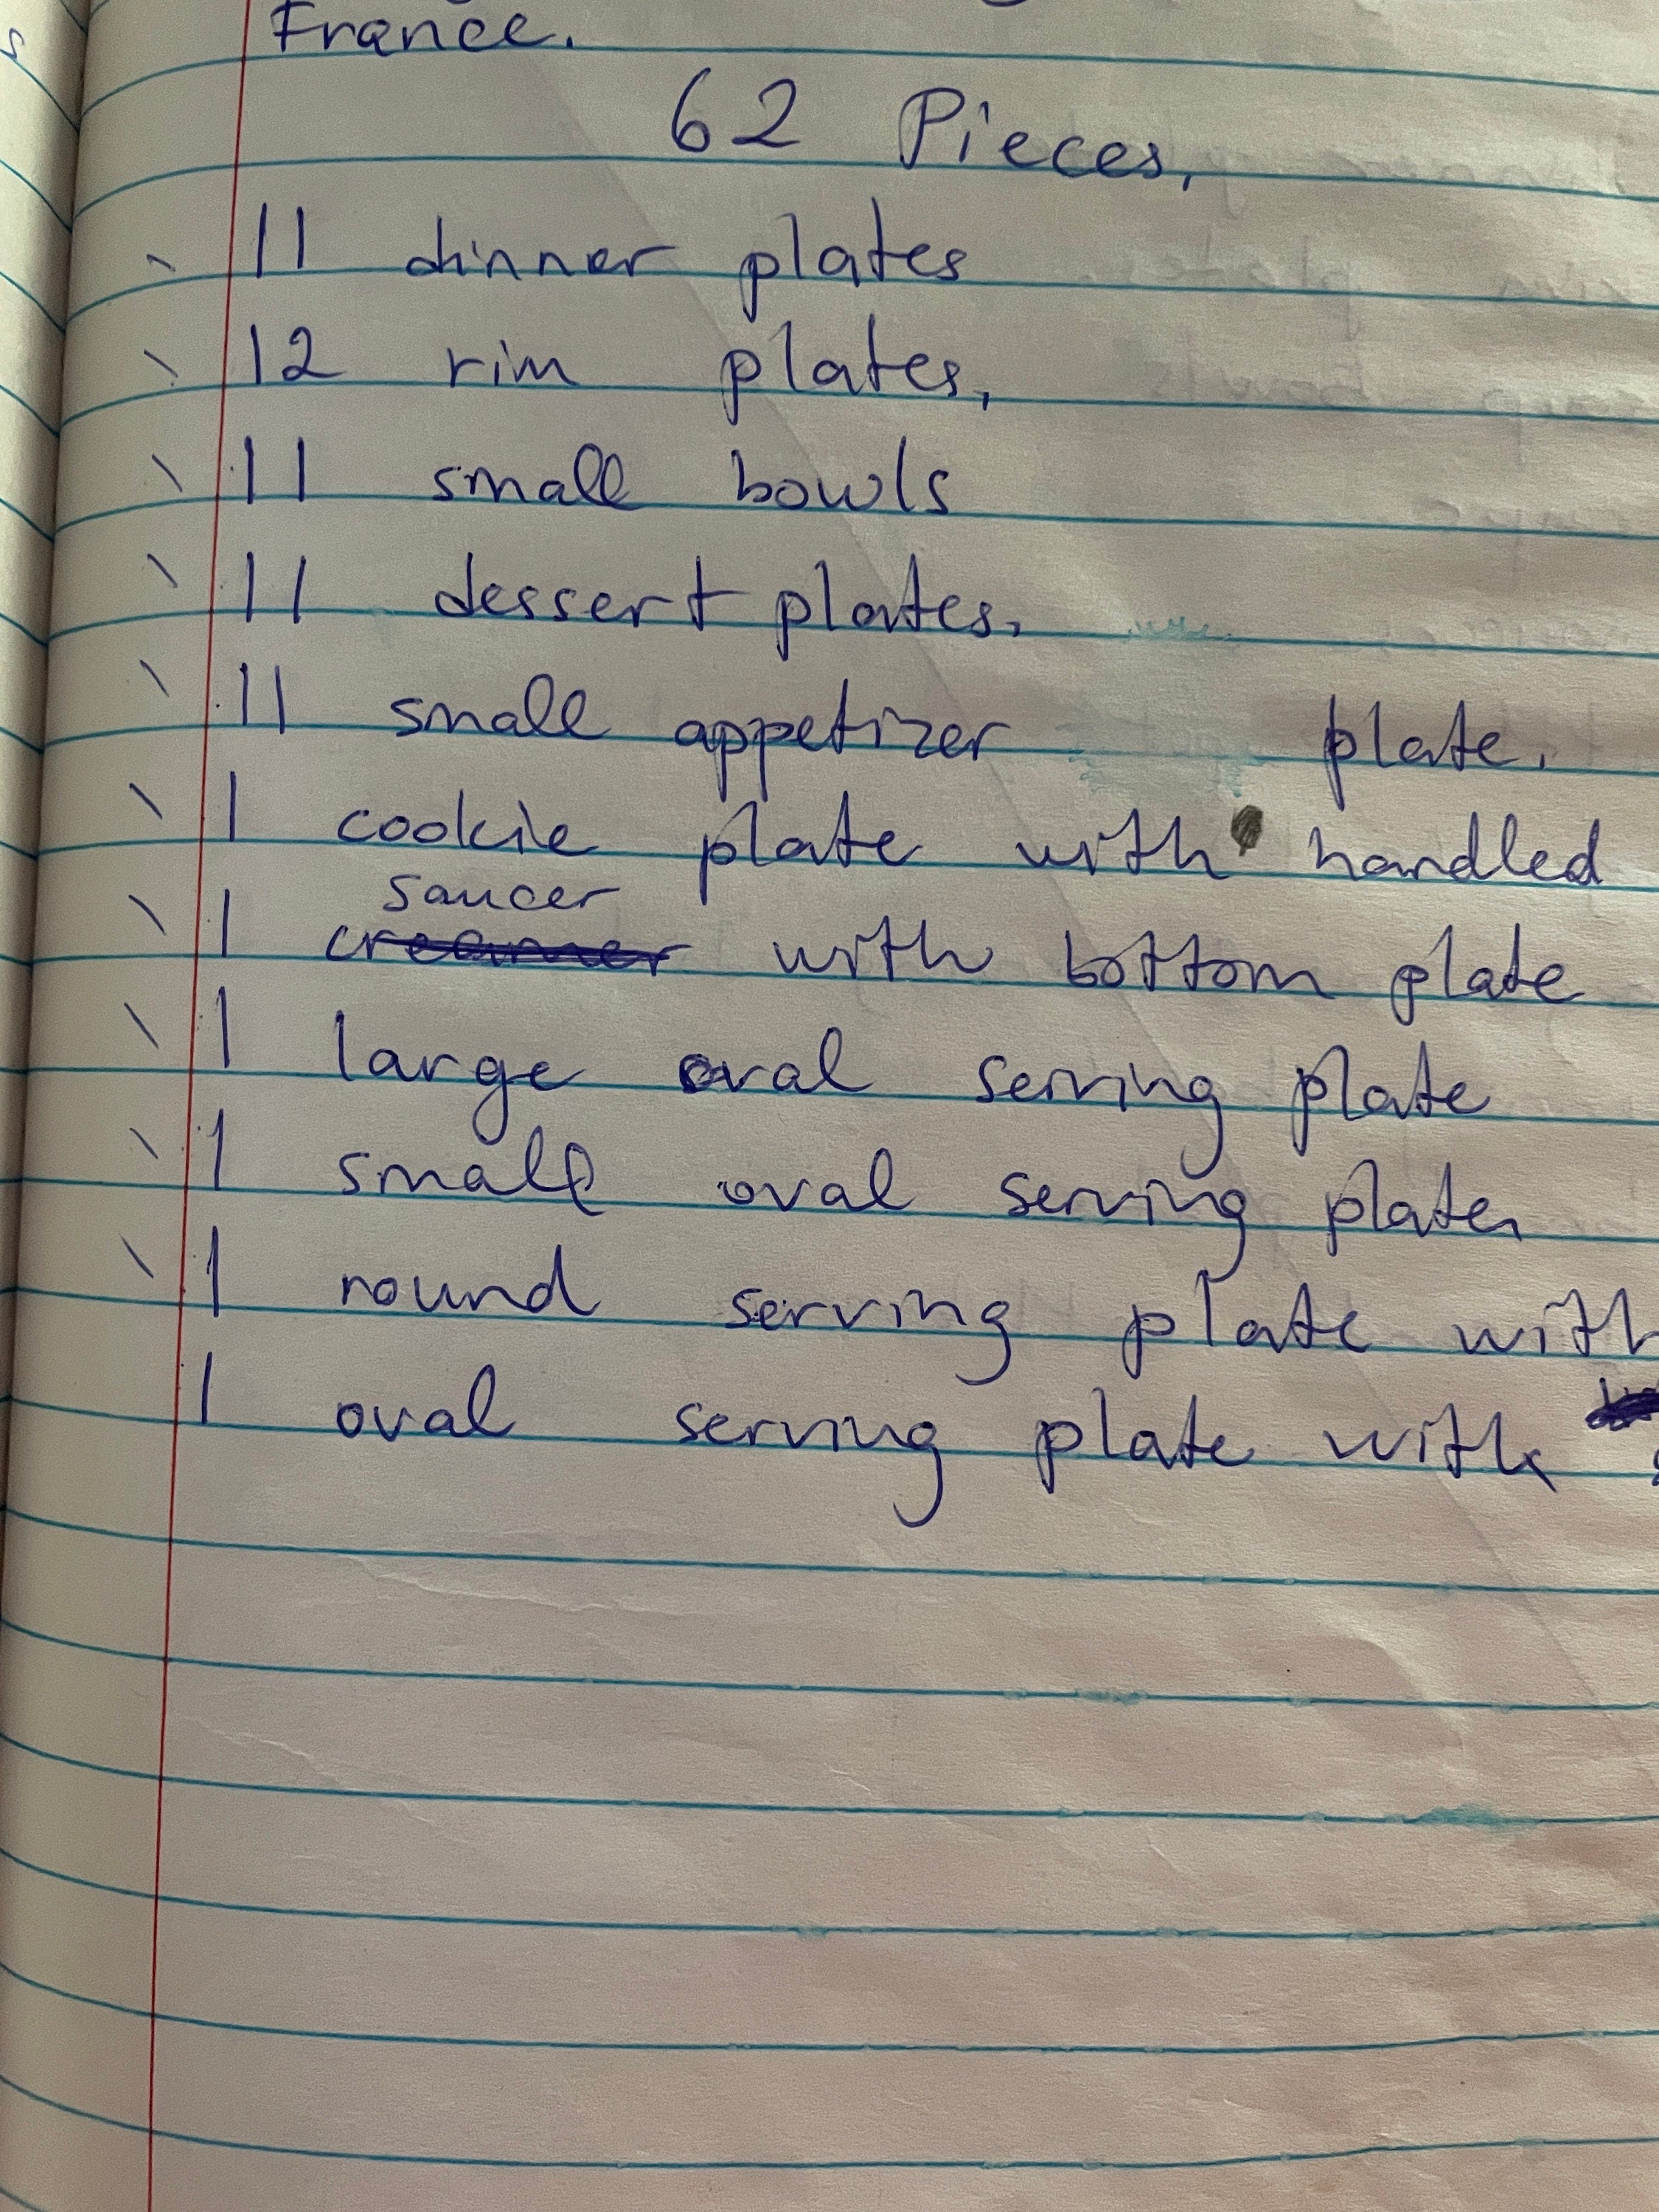 France.
62 Pieces,
11 dinner plates
12 rim plates,
11 small bowls
11 dessert plates,
11 small appetizer plate.
1 cookie plate with handled
saucer
1 creamer with bottom plate
1 large oval serving plate
1 small oval serving plate,
1 round serving plate with
1 oval serving plate with